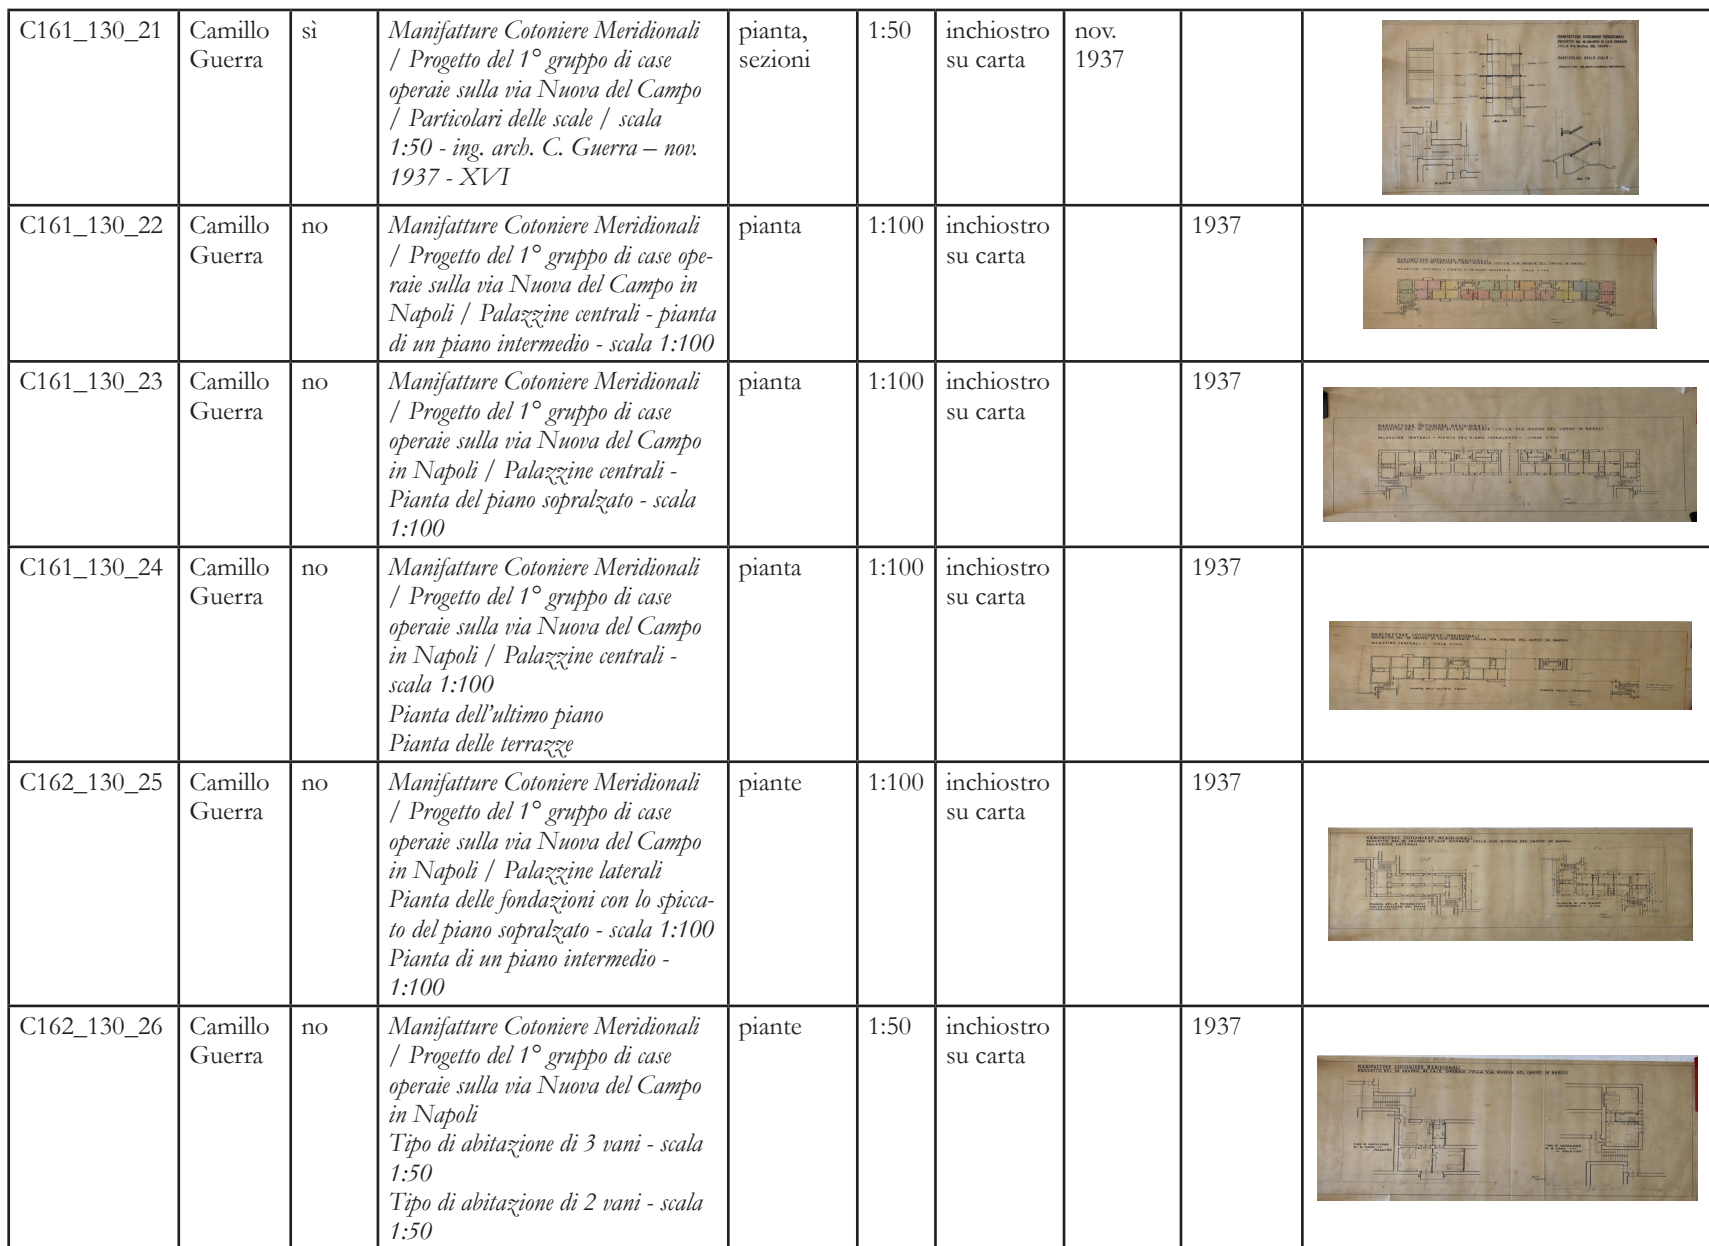 C161_130_21
Camillo
Guerra
sì
Manifatture Cotoniere Meridionali
/ Progetto del 1° gruppo di case
operaie sulla via Nuova del Campo
/ Particolari delle scale / scala
1:50 - ing. arch. C. Guerra – nov.
1937 - XVI
pianta,
sezioni
1:50
inchiostro
su carta
nov.
1937
C161_130_22
Camillo
Guerra
no
Manifatture Cotoniere Meridionali
/ Progetto del 1° gruppo di case ope-
raie sulla via Nuova del Campo in
Napoli / Palazzine centrali - pianta
di un piano intermedio - scala 1:100
pianta
1:100
inchiostro
su carta
1937
C161_130_23
Camillo
Guerra
no
Manifatture Cotoniere Meridionali
/ Progetto del 1° gruppo di case
operaie sulla via Nuova del Campo
in Napoli / Palazzine centrali -
Pianta del piano sopralzato - scala
1:100
pianta
1:100
inchiostro
su carta
1937
C161_130_24
Camillo
Guerra
no
Manifatture Cotoniere Meridionali
/ Progetto del 1° gruppo di case
operaie sulla via Nuova del Campo
in Napoli / Palazzine centrali -
scala 1:100
Pianta dell'ultimo piano
Pianta delle terrazze
pianta
1:100
inchiostro
su carta
1937
C162_130_25
Camillo
Guerra
no
Manifatture Cotoniere Meridionali
/ Progetto del 1° gruppo di case
operaie sulla via Nuova del Campo
in Napoli / Palazzine laterali
Pianta delle fondazioni con lo spicca-
to del piano sopralzato - scala 1:100
Pianta di un piano intermedio -
1:100
piante
1:100
inchiostro
su carta
1937
C162_130_26
Camillo
Guerra
no
Manifatture Cotoniere Meridionali
/ Progetto del 1° gruppo di case
operaie sulla via Nuova del Campo
in Napoli
Tipo di abitazione di 3 vani - scala
1:50
Tipo di abitazione di 2 vani - scala
1:50
piante
1:50
inchiostro
su carta
1937